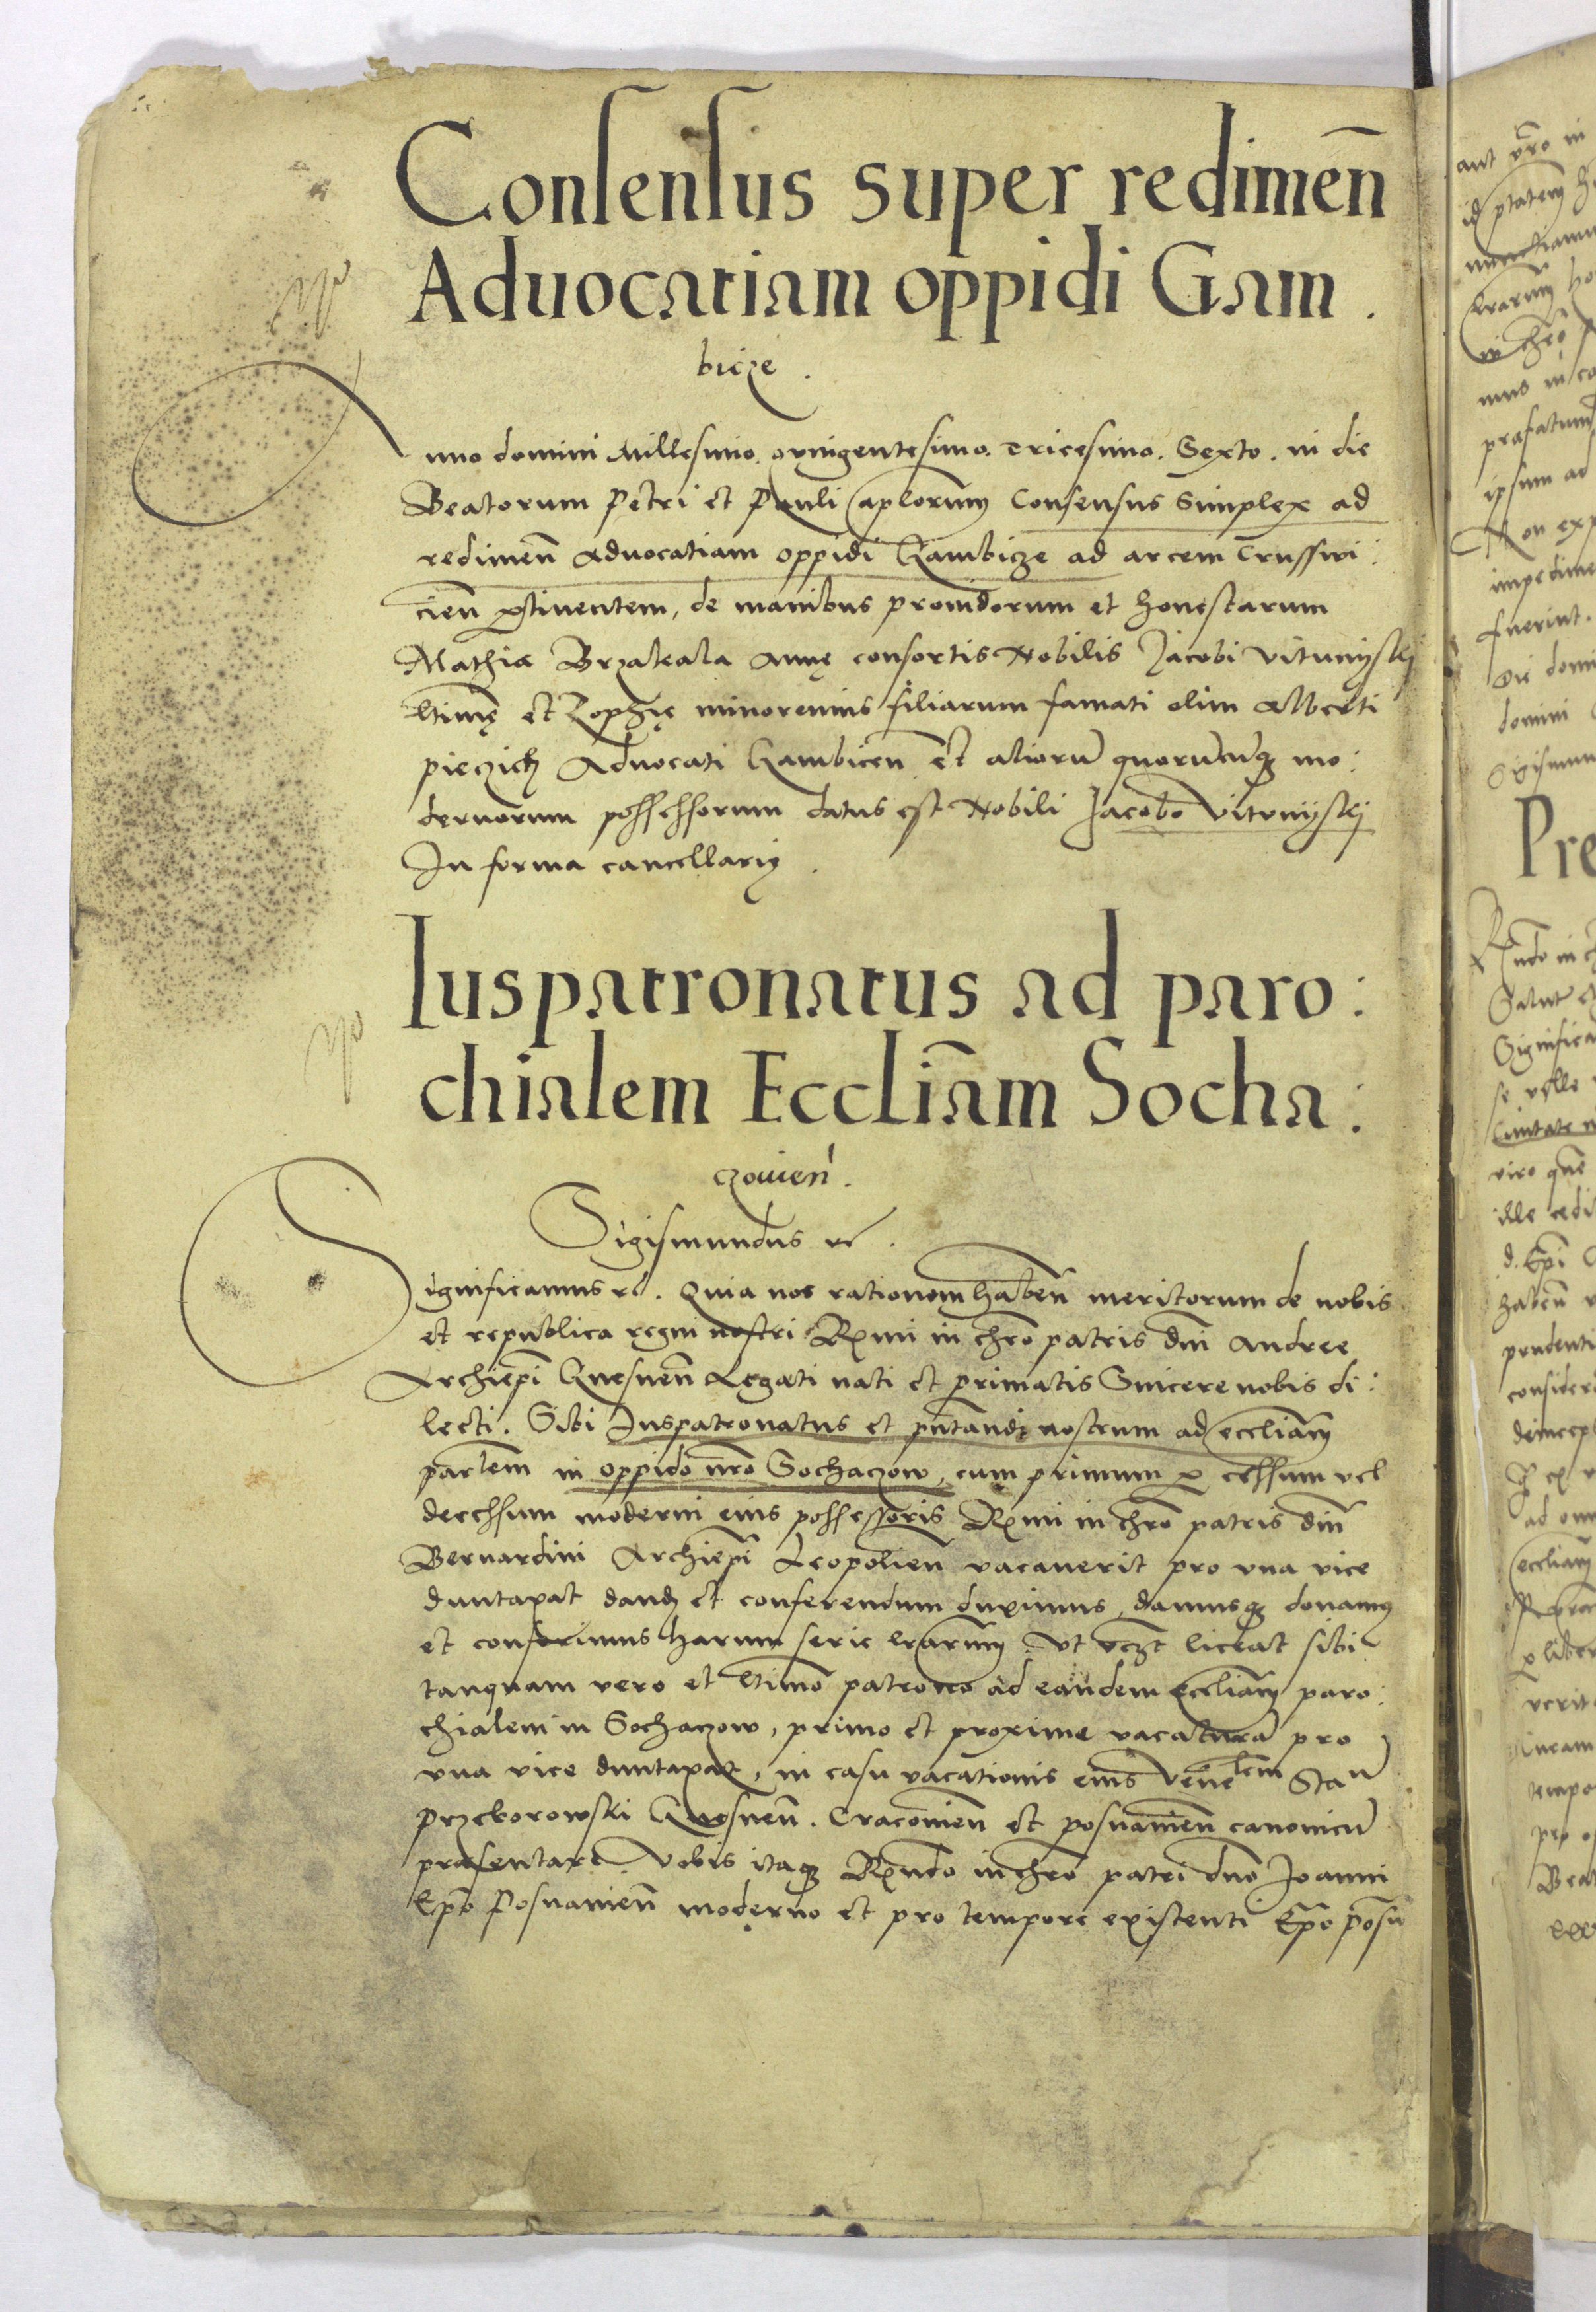 Consensus super redimen̄
Aduocatiam oppidi Gam.
bicze.
Anno domini Millesimo. quingentesimo. Tricesimo. Sexto. in die
Beatorum Petri et Pauli ap̄lorum Consensus Simplex ad
redimen̄ Aduocatiam oppidi Gambicze ad arcem Crusswi:
cien̄ p̱tinentem, de manibus prouidorum et honestarum
Mathiæ Brzakala Annę consortis Nobilis Jacobi
et Zophię minorennis filiarum famati olim Alberti
pieczich Aduocati Gambicen̄ et aliorū quorūcūq̄ mo:
dernorum possessorum datus est Nobili Jacobo
In forma cancellarię.
Iuspatronatus ad paro:
chialem Eccliām Socha:
czouien̄.
Sigismundus rc̄.
Significamus rc̄. Quia nos rationem haben̄ meritorum de nobis
et republica regni nostri Rx̄mi in chrō patris dn̄i Andree
Archiep̄i Gnesnen̄ Legati nati et primatis Sincere nobis di:
lecti. Sibi Juspatronatus et pn̄tandi nostrum ad eccliām
parlem̄ in oppido nr̄o Sochaczow, cum primum p̱ cessum vel
decessum moderni eius possessoris Rx̄mi in chrō patris dn̄i
Bernardini Archiep̄i Leopolien̄ vacauerit pro vna vice
duntaxat dand̄ et conferendum duximus, damusq̄ donamq̄
et conferimus harum serie lrārum. Vt vc̄zt liceat sibi
tanquam vero et ltīmo patrono ad eandem eccliām paro:
chialem in Sochaczow, primo et proxime vacaturā pro
vna vice duntaxat, in casu vacationis eius Vene̅lem Sta̅u
Przeborowski Gnesnen̄. Cracouien̄ et posnanien̄ canonicū
præsentare. Vobis itaq̄ Rn̄do in chrō patri dn̄o Joanni
Ep̄o Posnanien̄ moderno et pro tempore existenti Ep̄o posn̄